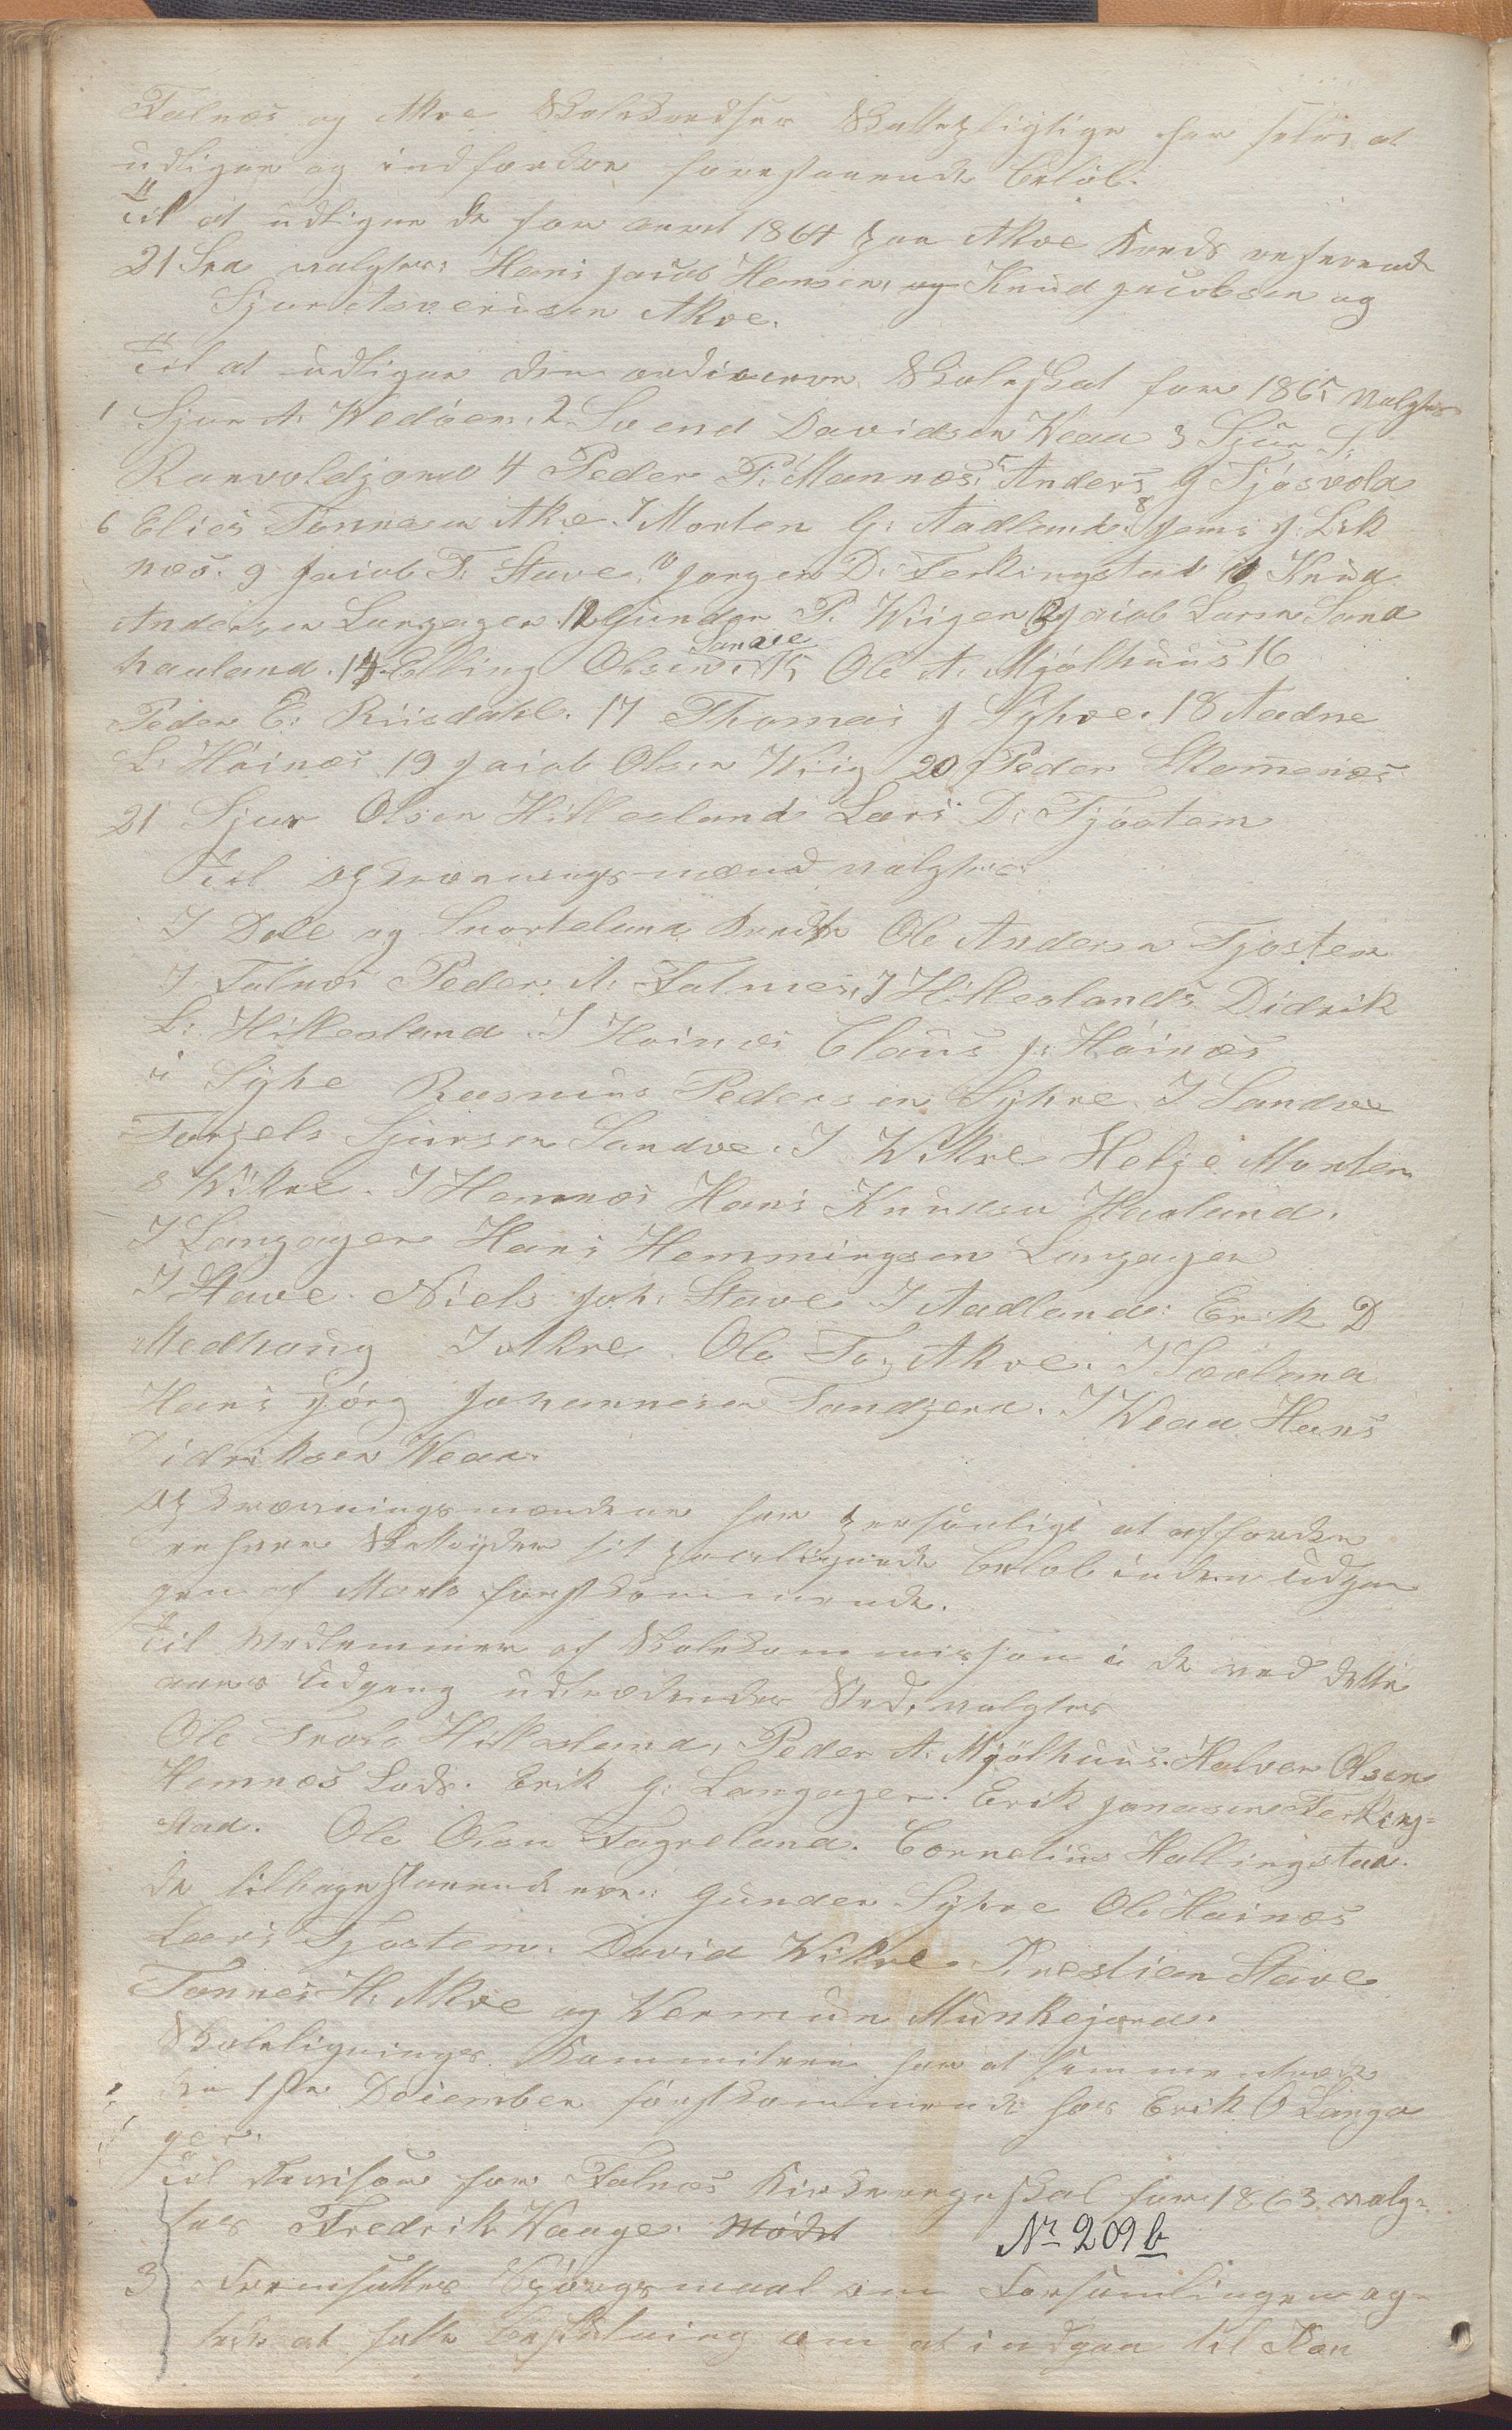 Falnæs og Akre Skolekredsers Skattepligtige har selv at
udligne og indfordre forestaaende Beløb.
Til at udligne de for aaret 1864 paa Akre Kreds
21 valgtes: Hans Jacob Hansen, og Knud Jacobsen og
Sjur Asserusen Akre.
Til at udligne den ordinære Skoleskat for 1865 valgtes
1 Sjur A: Wedøen, 2 Svend Davidsen Weaa 3 Sjur S:
4 Peder P: Mannæs, 5 Anders G Tjøsvold
6 Elias Tønnesen Akre. 7 Morten G: Aadland. 8 Jens J: Lik
næs. 9 Jacob T. Stave, 10 Jørgen D: Ferkingstad 11 Knud
Andersen Langager. 12 Gunder P. Wiigen 13 Jacob Larsen Sand
hauland. 14 Elling Olsen Sandve 15 Ole A: Mjølhuus 16
Peder E: Riisdahl. 17 Thomas J Syhre. 18 Aadne
L: Høinæs 19 Jacob Olsen Wiig 20 Peder Skamenæs
21 Sjur Olsen Hillesland Lars D: Tjøstem
Til Opkrævningsmænd valgtes
I Dale og Snorteland Kreds Ole Andersen Tjøstem
I Falnæs Peder A: Falnæs, I Hillesland Didrik
L: Hillesland. I Høinæs Claus J: Høinæs
i Syhre Rasmus Pedersen Syhre. I Sandve
Torgels Sjursen Sandve. I Wikre Helge Morten
s Wikre. I Hemnæs Hans Knudsen Haaland.
I Langager Hans Hemmingsen Langager
I Stave. Niels Joh: Stave. I Aadland: Erik D
Medhaug I Akre. Ole T. Akre. I Sævland
Hans Jørg Johannesen Sandgerd. I Weaa Hans
Didriksen Weaa.
Opkrævningsmændene har personligt at affordre
enhver Skatteyder sit paalignede Beløb inden Udgan
gen af Marts førstkommende.
Til Medlemmer af Skolekommission i de ved dette
aars Udgang udtrædendes Sted, valgtes
Ole Hillesland, Peder A. Mjølhuus. Halvor Olsen
Hemnæs Lods. Erik G: Langager. Erik Jonasen Ferking-
stad. Ole Olsen Fagreland. Cornelius Hallingstad.
de tilbagestaaende ere: Gunder Syhre Ole Høinæs
Lars Tjøstem. David Wikre. Krestian Stave
Tønnes H. Akre og Vermun Munkejord.
Skoleligningskommiteen har at sammentræde
den 1ste December førstkommende hos Erik G Langa
ger.
Til Revisor for Falnæs Kirkeregnskab for 1863 valg-
tes Fredrik Waage. Mødet
Nr 209 b
3 Fremsattes Spørgsmaal om Forsamlingen ag-
tede at fatte Beslutning om at indgaa til Kon